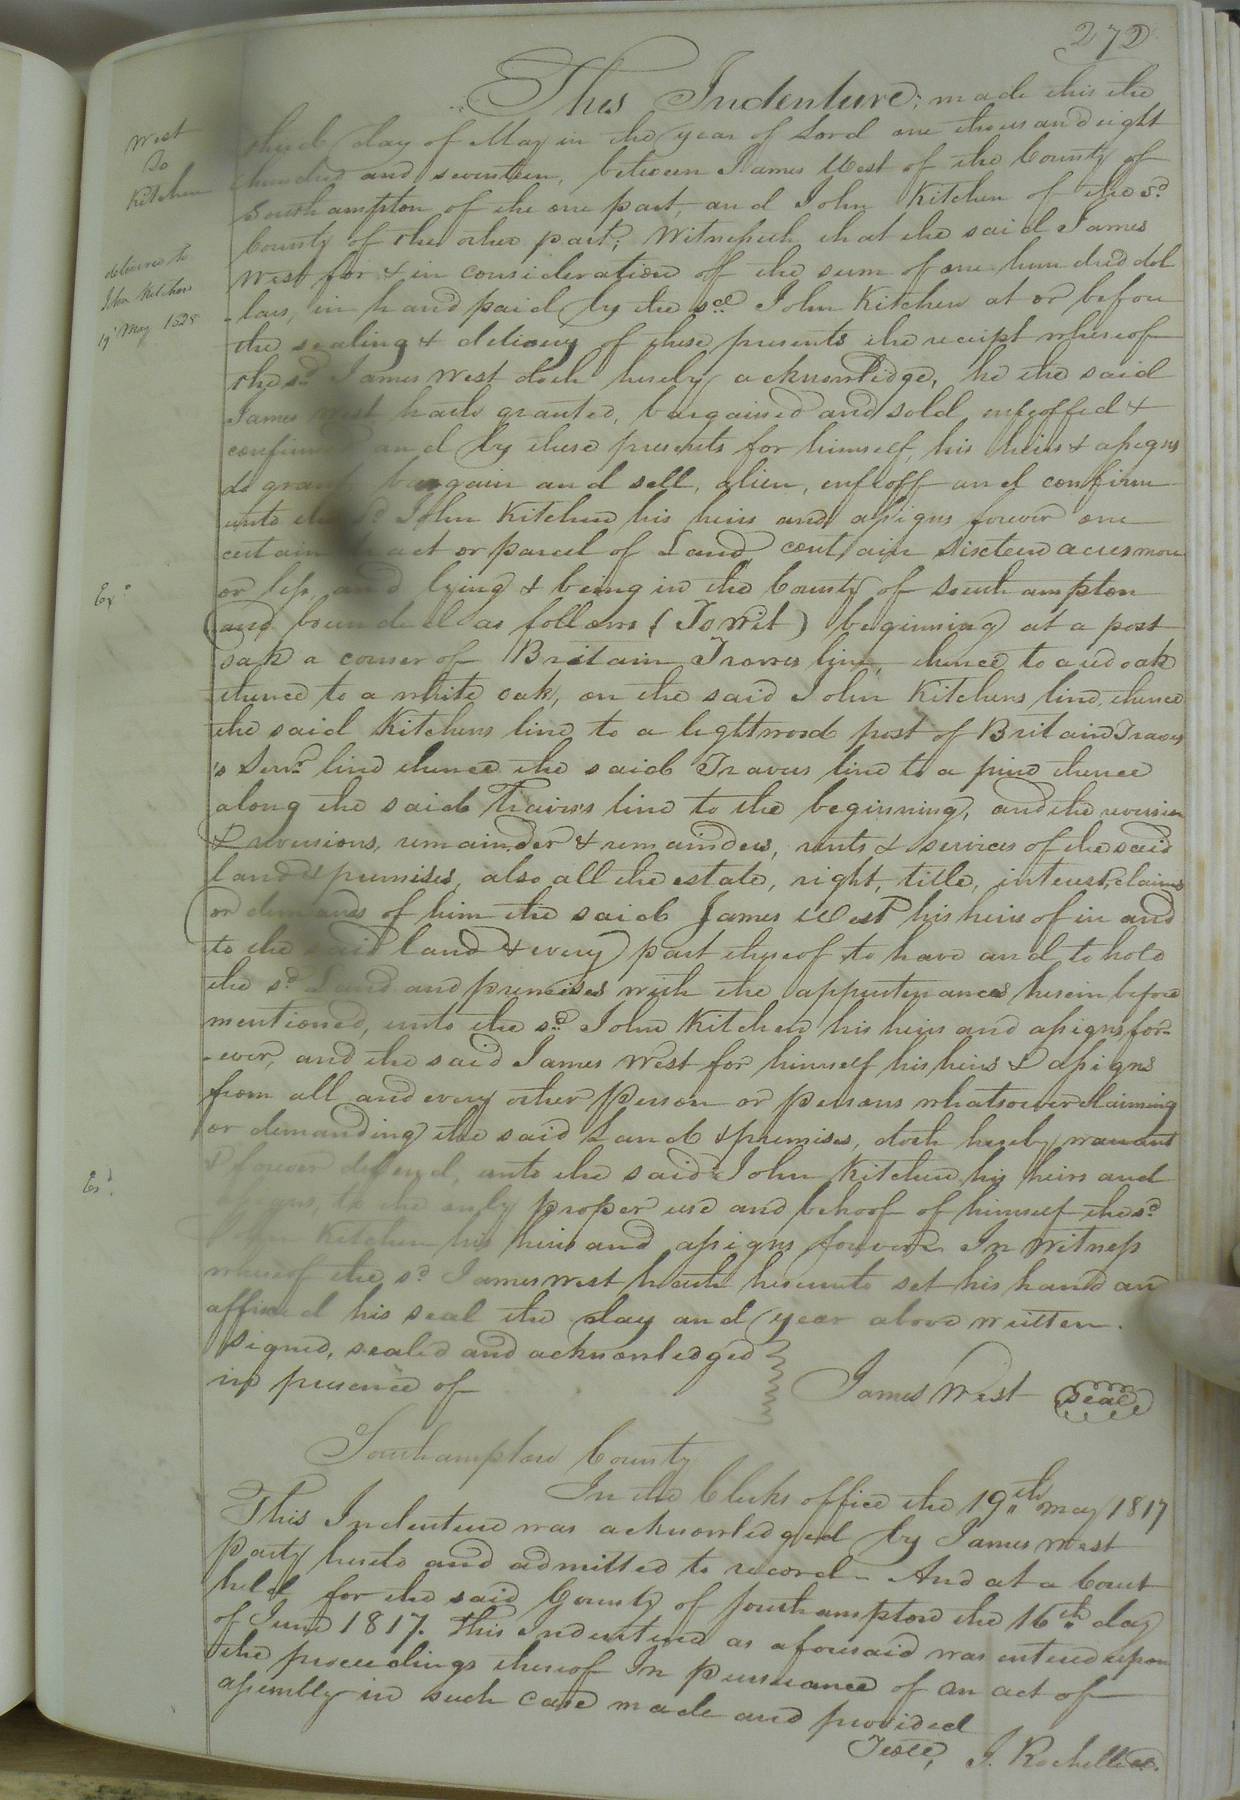 272
West
to
Kitchen
delivered to
John Kitchen
19th May 1828
Exd
Exd
This Indenture; made this the
third day of May in the year of Lord one thousand eight
hundred and seventeen, between James West of the County of
Southampton of the one part, and John Kitchen of the sd
County of the other part; Witnesseth that the said James
West for & in consideration of the sum of one hundred dol
-lars, in hand paid by the sd John Kitchen at or before
the sealing & delivery of these presents the receipt whereof
the sd James West doth hereby acknowledge, he the said
James West hath granted, bargained and sold, enfeoffed &
confirmed and by these presents for himself, his heirs & assigns
do grant, bargain and sell, alien, enfeoff and confirm
unto the sd John Kitchen his heirs and assigns forever one
certain tract or parcel of Land, contain sixteen acres more
or less, and lying & being in the County of Southampton
and bounded as follows (To wit) beginning at a post
oak a corner of Britain Travers line, thence to a red oak
thence to a white oak, on the said John Kitchens line, thence
the said Kitchens line to a lightwood post of Britain Travers
's Senr line thence the said Travers line to a pine thence
along the said Travers line to the beginning, and the reversion
& reversions, remainder & remainders, rents & services of the said
land & premises, also all the estate, right, title, interest, claims
or demands of him the said James West his heirs of in and
to the said land & every part thereof to have and to hold
the sd Land and premises with the appurtenances herein before
mentioned, unto the sd John Kitchen his heirs and assigns for-
-ever, and the said James West for himself his heirs & assigns
from all and every other person or persons whatsoever claiming
or demanding the said Land & premises, doth hereby warrant
& forever defend, unto the said John Kitchen his heirs and
assigns, to the only proper use and behoof of himself the sd
John Kitchen his heirs and assigns forever. In Witness
whereof the sd James West hath hereunto set his hand an
affixed his seal the day and year above written.
Signed, sealed and acknowledged
in presence of
James West Seal
Southampton County
In the Clerks office the 19th May 1817
This Indenture was acknowledged by James West
party hereto and admitted to record - And at a Court
held for the said County of Southampton the 16th day
of June 1817. This Indenture as aforesaid was entered upon
the proceedings thereof In pursuance of an act of
assembly in such case made and provided
Teste, J. Rochelle cl.